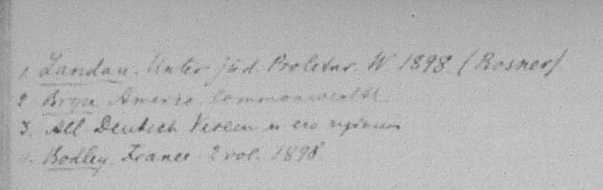 1. Landau. Unter jüd. Proletar. W 1898. (Rosner)
2. Bryce Americ. Commonwealth.
3. All Deutsch Verein и его
4. Bodley. France 2 vol. 1898